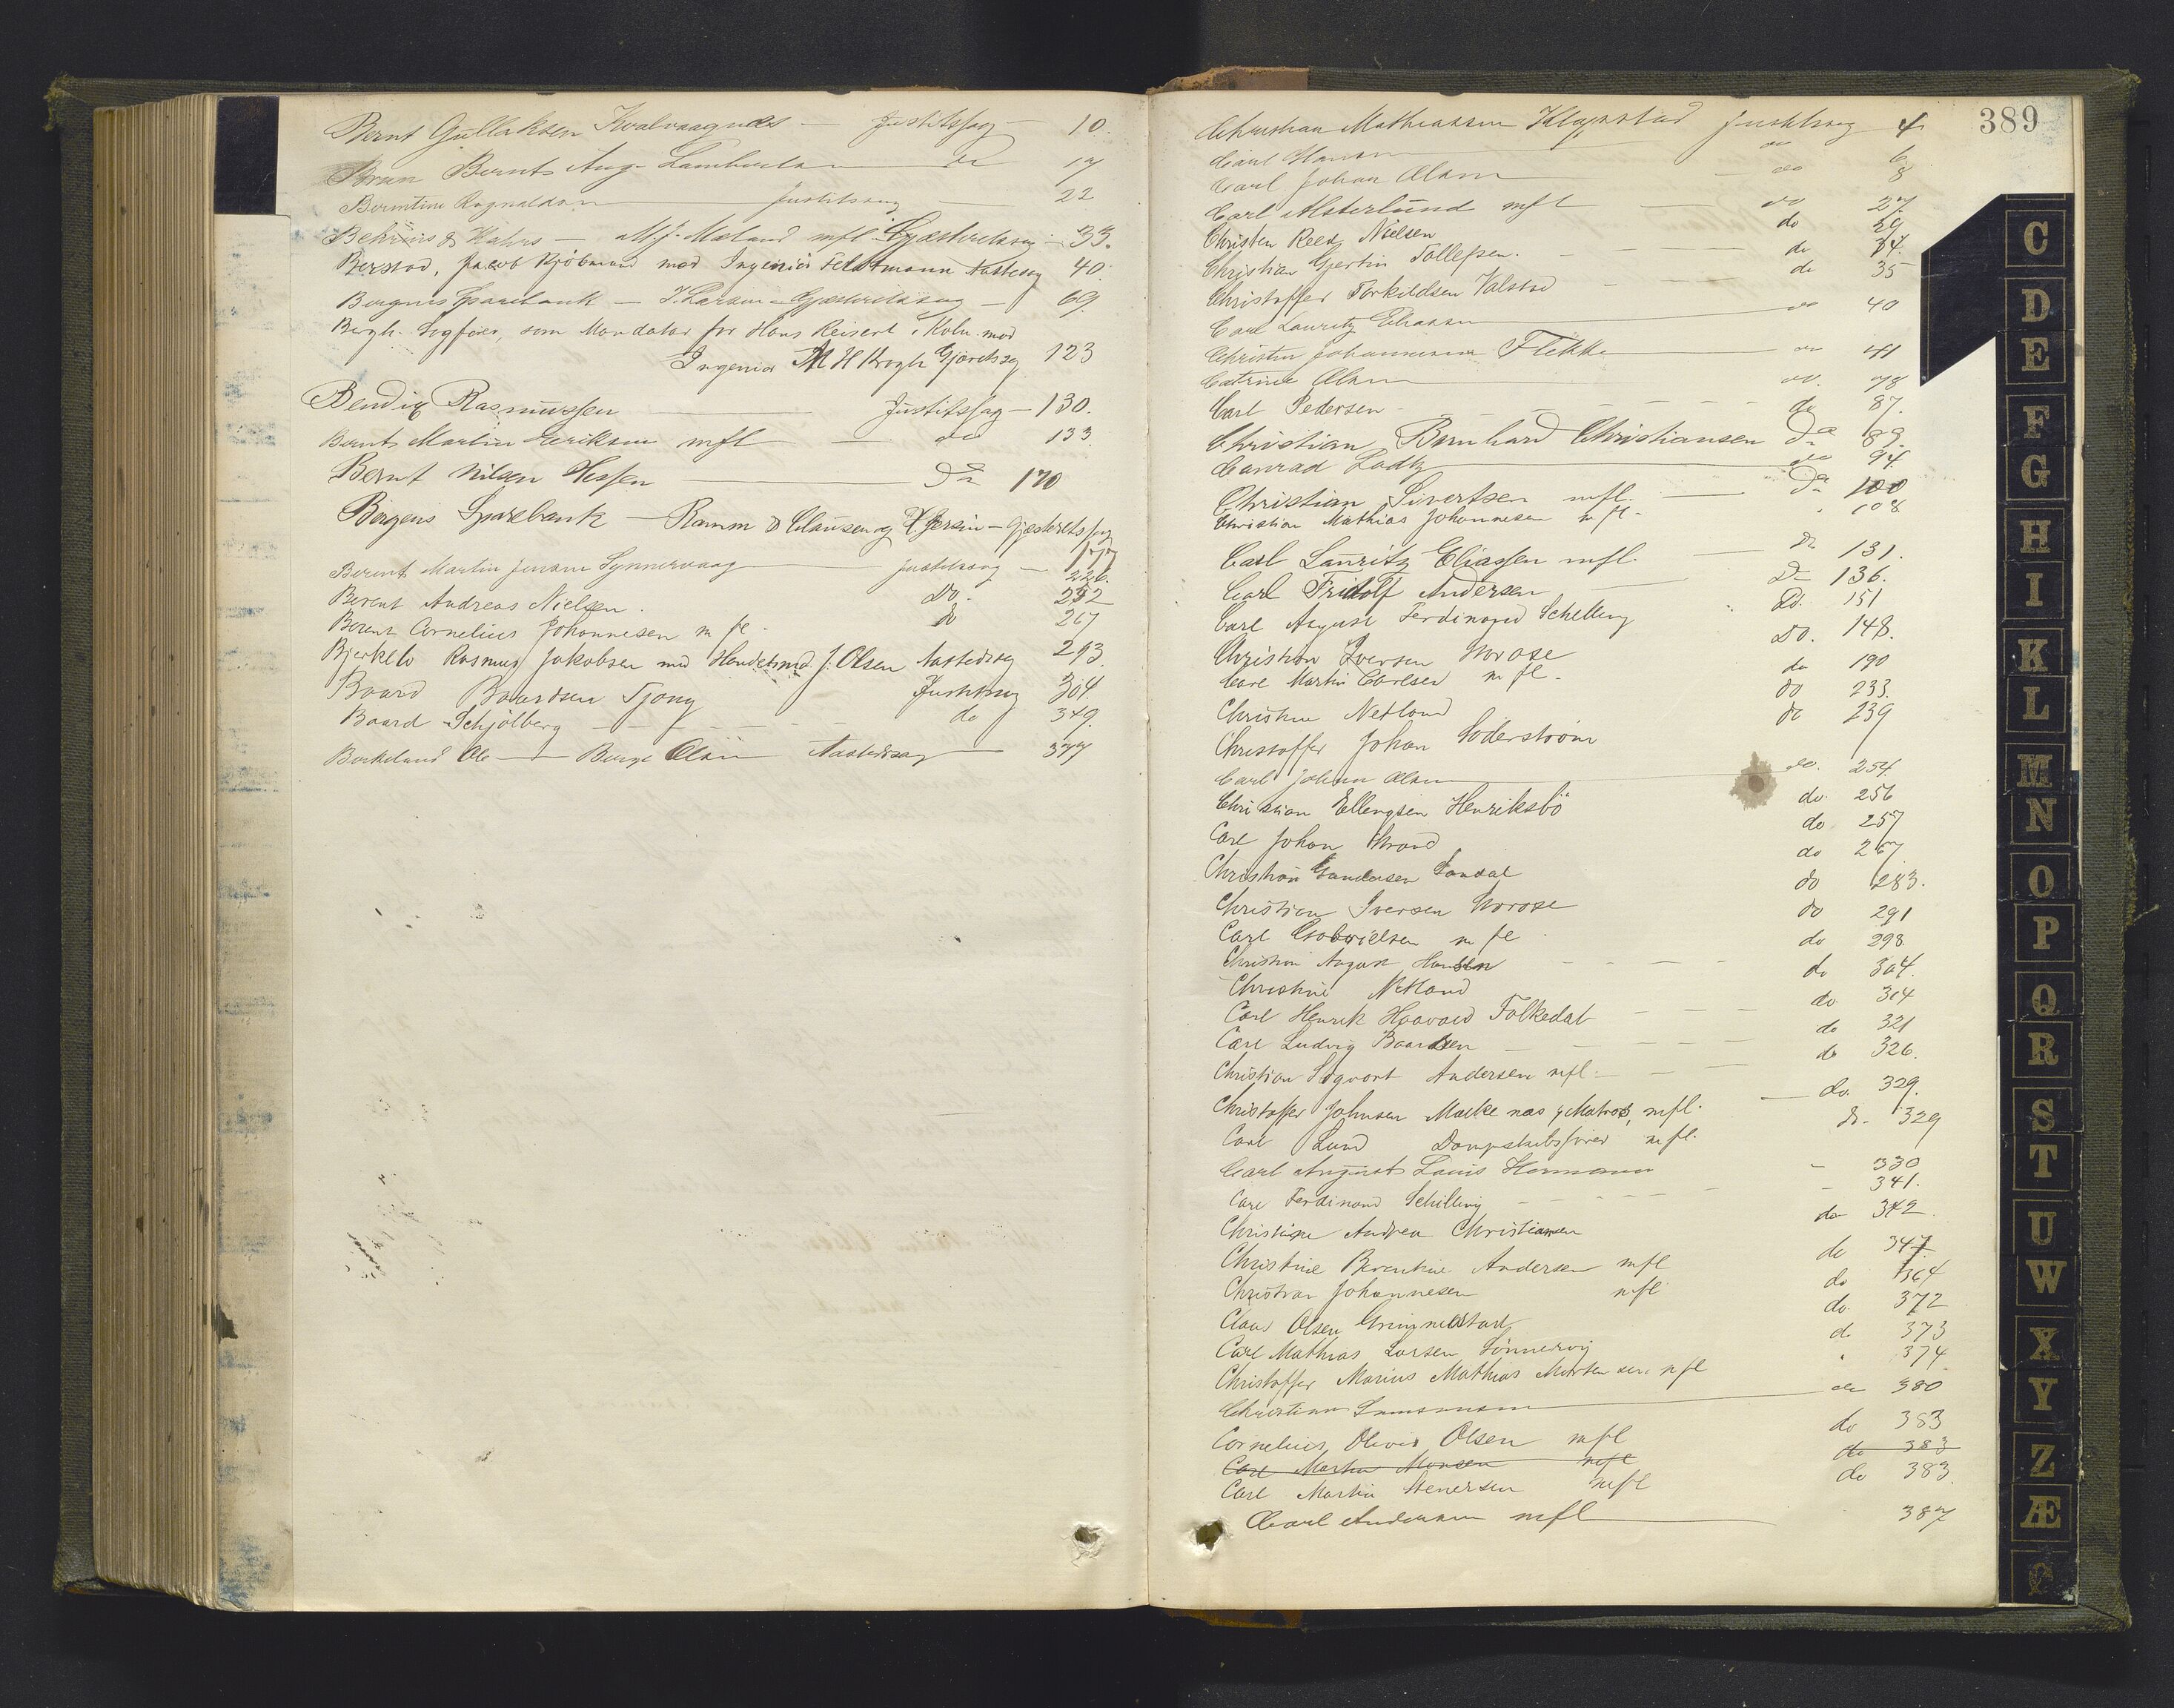 Bernt Gullaksen Kvalvaagnæs — Justitssag — 10.
Brun Bernt Aug. Lambertsen do 17
Berntine Ragnaldsen Justitssag — 22
Behrens & Hahrs — M. J. Mæland mfl. Gjæsteretssag — 33.
Berstad, Jacob Kjöbmand mod Ingeniör Feldtmann Nastesag 40.
Bergens Sparebank — J. Larsen — Gjæsteretssag — 69.
Bergh. Sogförer, som Mandatar for Hans Reisert i Køln. mod
Ingeniør M H Krogh Gjæretssag 123
Bendix Rasmussen Justitssag — 130.
Bernt Martin Eeriksen mfl — do 133.
Bernt Nilsen Hessen Do 170
Bergens Sparebank — Ramm & Clausen og H Gersin — Gjæsteretssag
177
Berent Martin Jensen Synnevaag Justitssag — 226.
Berent Andreas Nielsen. Do. 232
Berent Cornelius Johannesen m fl. do 267
Bjerkelo Rasmus Jakobsen mod Handelsmd. J. Olsen Aastedssag 293.
Baard Baardsen Tjong Justitssag 304.
Baard Schjölberg do 349.
Birkeland Ole — Børge Olsen Aastedssag 377
389
Christian Mathiassen Klepstad Justitssag 4
Carl Hansen do 6
Carl Johan Olsen do 8
Carl Alsterlund mfl do 27.
Christen Reed Nielsen do 29
Christian Gjertin Tollefsen. do 34.
Christoffer Torkildsen Valstad do 35
Carl Lauritz Eliassen do 40
Christen Johannesen Flekke do 41
Catrine Olsen do. 78
Carl Pedersen do 87.
Christian Bernhard Christiansen Do 89.
Conrad Ladtz do 94.
Christian Sivertsen mfl. Do 100
Christian Mathias Johannesen m fl. 108
Carl Lauritz Eliassen mfl. Do 131.
Carl Fridtolf Andersen Do 136.
Carl August Ferdinand Schelling Do. 151
Christian Iversen Norose Do. 148.
Carl Martin Carlsen m fl. do 190
Christine Netland do 233.
Christoffer Johan Soderstrøm do 239
Carl Johan Olsen do. 254.
Christian Ellengsen Henriksbö do. 256
Carl Johan Strand do 257
Christian Gundersen Sandal do 267
Christian Iversen Norose do 283.
Carl Gabrielsen m fl do 291
Christian August Hansen do 298
Christine Netland do 304.
Carl Henrik Haavard Folkedal do 314
Carl Ludvig Baardsen do 321
Christian Sigvart Andersen mfl. do 326.
Christoffer Johnsen Mækenæs, Matros, mfl. do. 329.
Carl Lund Dampskibsfører m fl. do. 329
Carl August Louis Hermann 330
Carl Ferdinand Schilling 341.
Christiane Andrea Christiansen do 342.
Christine Berentine Andersen mfl do 347.
Christian Johannesen mfl. do 364
Claus Olsen Grimmestad do. 372
Carl Mathias Larsen Sönnervig do 373
Christoffer Marius Mathias Mortensen mfl 374.
Christian do 380
Cornelius Olivus Olsen mfl do 383
Carl Martin Monsen mfl do 383
Carl Martin Stenersen mfl do 383.
Carl Andersen mfl 387
C
D
E
F
G
H
I
K
L
M
N
O
P
Q
R
S
T
U
W
X
Y
Z
Æ
Ø